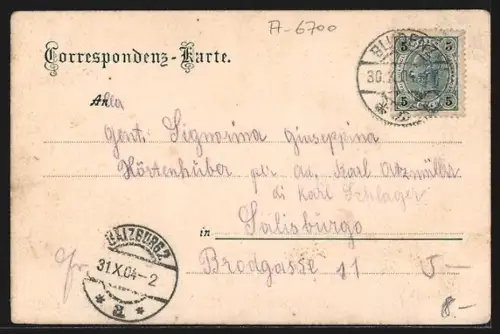 A-6700
Correspondenz-Karte.
BLUDENZ
30.X.04
5 5
5 5
An
Alla
Gent. Signorina Giuseppina
Hörtenhuber per ad. Karl
di Karl Schlager
in Salisburgo
Brodgasse 11
SALZBURG 2
31.X.04-2
* *
5-
8.-